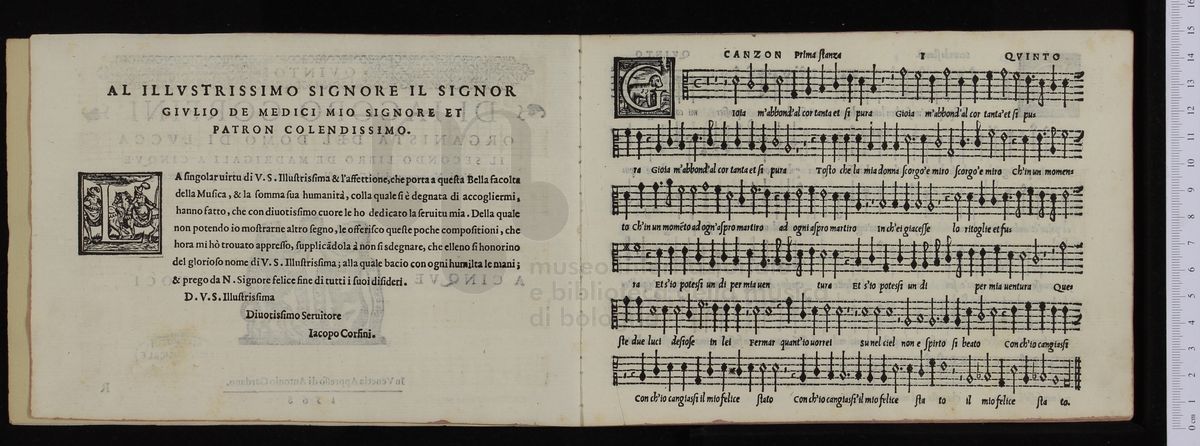 AL ILLVSTRISSIMO SIGNORE IL SIGNOR
GIVLIO DE MEDICI MIO SIGNORE ET
PATRON COLENDISSIMO.
LA singolar uirtu di V. S. Illustrissima & l'affettione, che porta a questa Bella facolta
della Musica, & la somma sua humanità, colla quale si è degnata di accogliermi,
hanno fatto, che con diuotissimo cuore le ho dedicato la seruitu mia. Della quale
non potendo io mostrarne altro segno, le offerisco queste poche compositioni, che
hora mi hò trouato appresso, supplicãdola à non si sdegnare, che elleno si honorino
del glorioso nome di V. S. Illustrissima; alla quale bacio con ogni humilta le mani;
& prego da N. Signore felice fine di tutti i suoi disideri.
D. V. S. Illustrissima
Diuotissimo Seruitore
Iacopo Corfini.
CANZON Prima stanza 1 QVINTO
GIoia m'abbond'al cor tanta et si pura Gioia m'abbond'al cor tanta'et si pu
ra Gioia m'abbond'al cor tanta et si pura Tosto che la mia donna scorgo'e miro scorgo'e miro Ch'in un momen
to Ch'in un momẽto ad ogn'aspro martiro ad ogni aspro martiro In ch'ei giacesse lo ritoglie et fu
ra Et s'io potessi un di per mia uen tura Et s'io potessi un di per mia uentura Que
ste due luci desiose in lei Fermar quant'io uorrei Su nel ciel non e spirto si beato Con ch'io cangiassi
Con ch'io cangiassi il mio felice stato Con ch'io cangiassi'il mio felice sta to il mio felice sta to.
museo
e biblio
di bolo